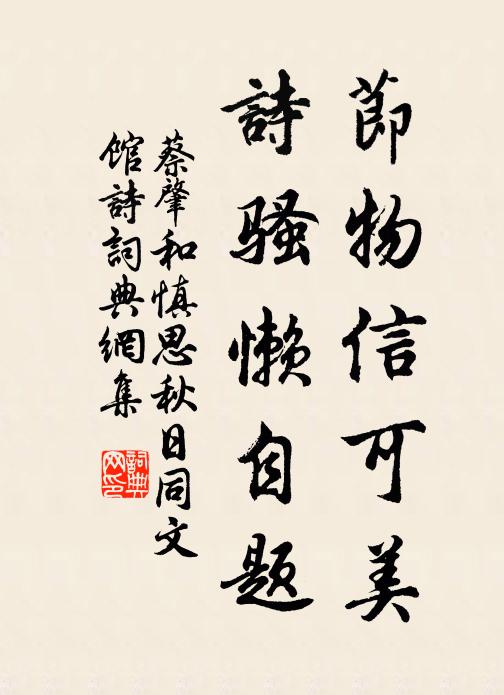 節物信可美
詩騷懶自題
蔡肇和慎思秋日同文
館詩詞典網集
詞典
网印